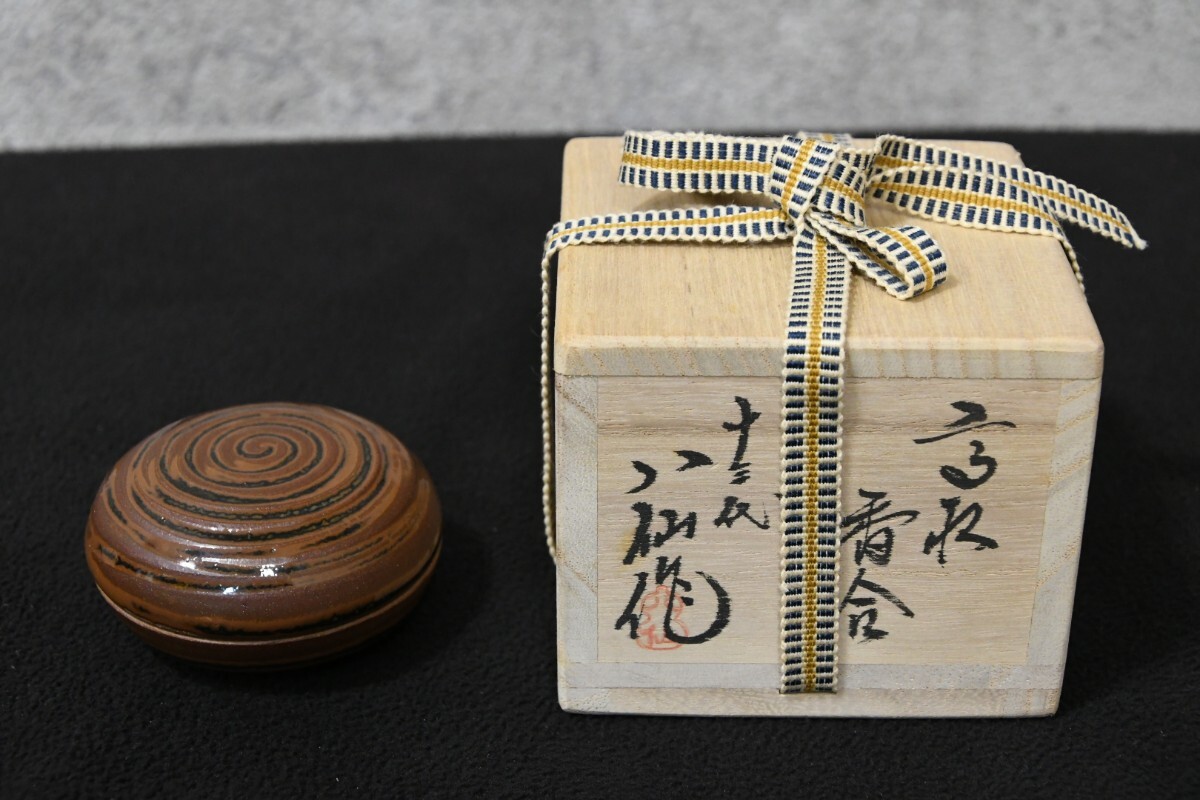 高取
香合
十三代
八仙作